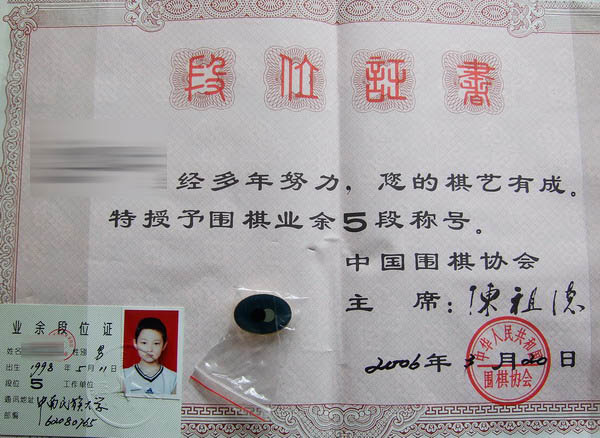 段位証書
经多年努力，您的棋艺有成。
特授予围棋业余5段称号。
中国围棋协会
主 席：陳祖德
2006年3月20日
中华人民共和国
围棋协会
业余段位证
姓名 性别 男
出生 1998年5月11日
段位 5 工作单位
通讯地址 中南民族大学
邮编 62080765